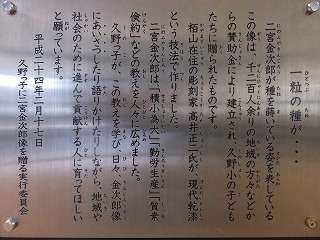 一粒の種が・・・
二宮金次郎が種を蒔いている姿を表している
この像は、千二百人余りの地域の方々などか
らの賛助金により建立され、久野小の子ども
たちに贈られたものです。
栢山在住の彫刻家高井正二氏が、現代乾漆
という技法で作りました。
二宮金次郎は、「積小為大」「勤労生産」「質素
倹約」などの教えを人々に広めました。
久野っ子が、この教えを学び、日々、金次郎像
にあいさつしたり語りかけたりしながら、地域や
社会のために進んで貢献する人に育ってほしい
と願っています。
平成二十四年二月十七日
久野っ子に二宮金次郎像を贈る実行委員会